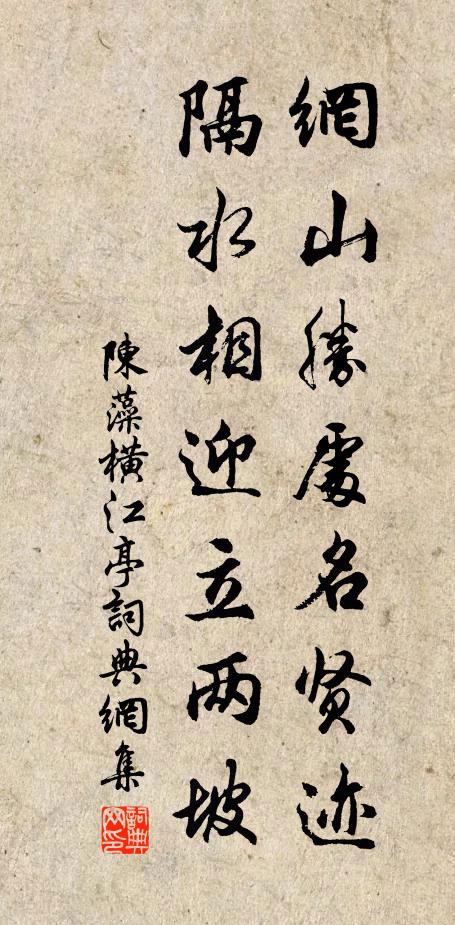 網山勝處名贤迹
隔水相迎立两坡
陳藻橫江亭詞典網集
詞典網印